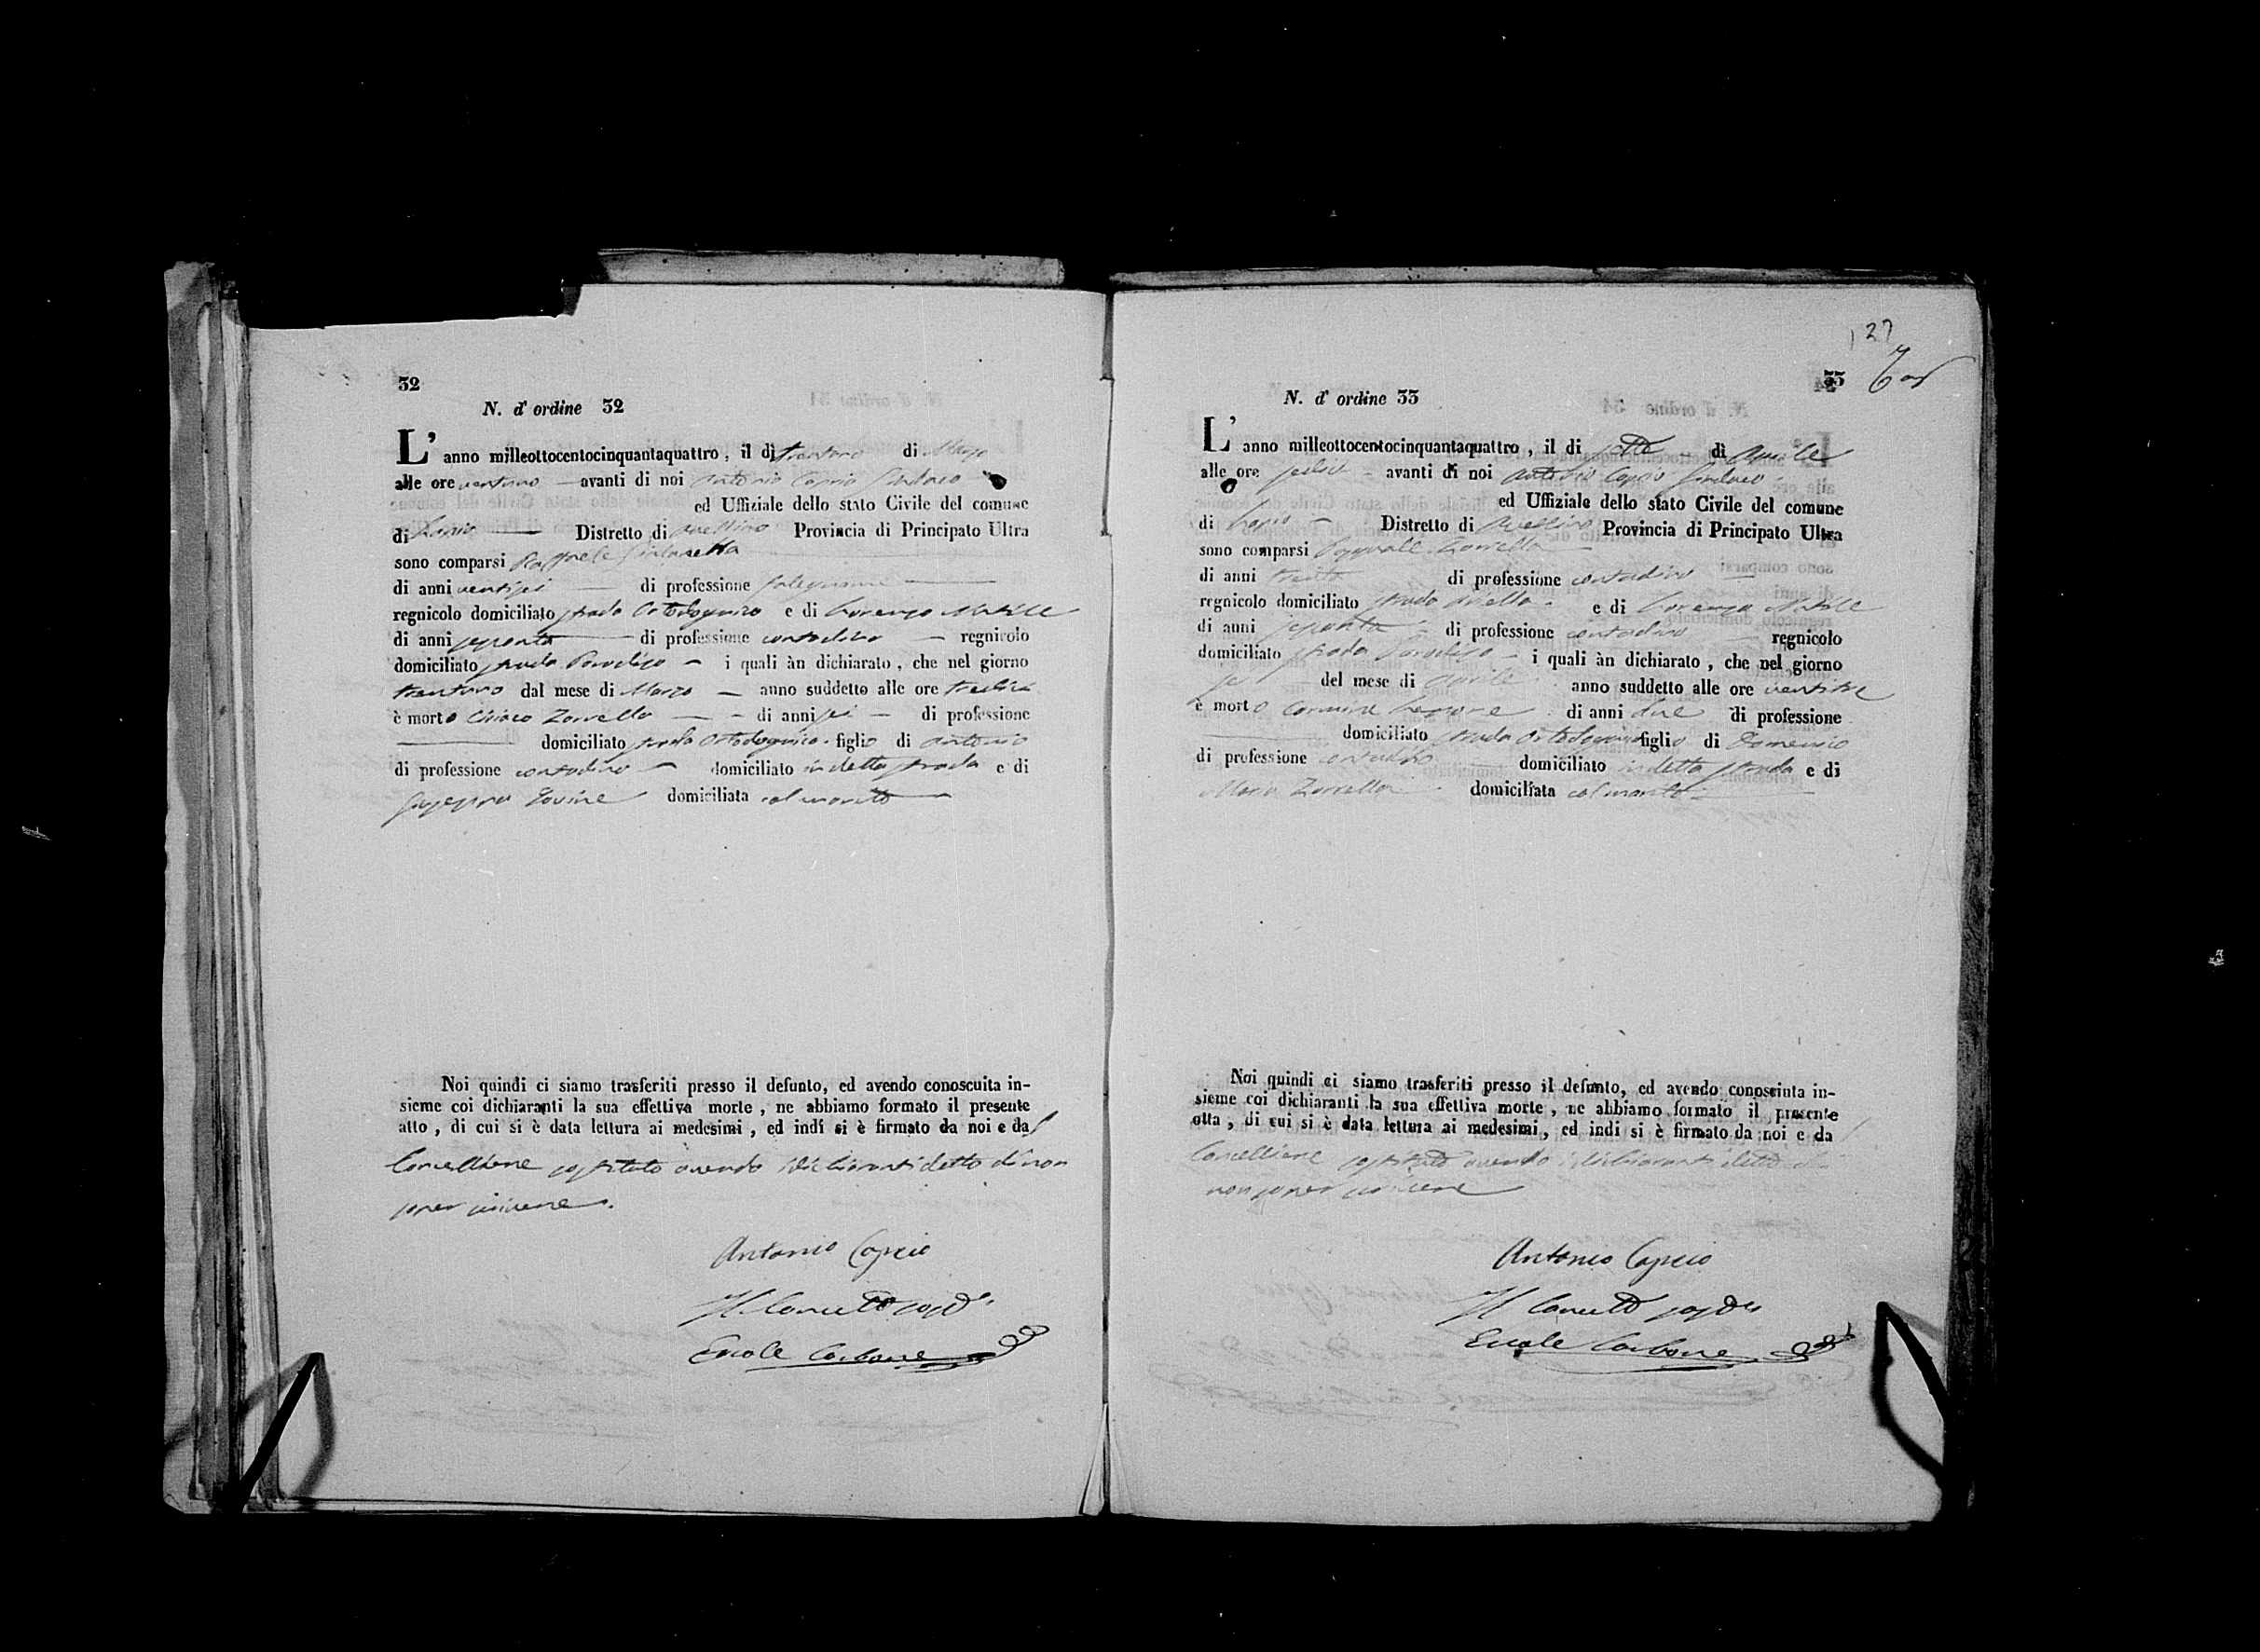 32
N. d' ordine 32
L' anno milleottocentocinquantaquattro, il dì trentuno di Marzo
alle ore ventuno — avanti di noi Antonio Caprio Sindaco
ed Uffiziale dello stato Civile del comune
di Lapio — Distretto di Avellino Provincia di Principato Ultra
sono comparsi Raffaele
di anni ventisei — di professione falegname —
regnicolo domiciliato strada Ortodonico e di Lorenzo
di anni sessanta — di professione contadino — regnicolo
domiciliato strada Paradiso — i quali àn dichiarato, che nel giorno
trentuno dal mese di Marzo — anno suddetto alle ore tredici
è morto Ciriaco Zarrella — — di anni sei — di professione
— domiciliato strada Ortodonico figlio di Antonio
di professione contadino — domiciliato in detta strada e di
Giuseppa Iovine domiciliata col marito —
Noi quindi ci siamo trasferiti presso il defunto, ed avendo conoscuita in-
sieme coi dichiaranti la sua effettiva morte, ne abbiamo formato il presente
atto, di cui si è data lettura ai medesimi, ed indi si è firmato da noi e dal
Cancelliere sostituto avendo i dichiaranti detto di non
saper scrivere.
Antonio Caprio
Il Cancell. sost.
Ercole Carbone
127
33
N. d' ordine 33
L' anno milleottocentocinquantaquattro, il dì sette — di Aprile
alle ore sedici — avanti di noi Antonio Caprio Sindaco
ed Uffiziale dello stato Civile del comune
di Lapio — Distretto di Avellino Provincia di Principato Ultra
sono comparsi Pasquale Zarrella —
di anni trenta di professione contadino —
regnicolo domiciliato strada — e di Lorenzo
di anni sessanta — di professione contadino — regnicolo
domiciliato strada Paradiso — i quali àn dichiarato, che nel giorno
sei — del mese di Aprile anno suddetto alle ore ventitre
è morto Carmine di anni due di professione
domiciliato strada Ortodonico figlio di Domenico
di professione contadino — domiciliato in detta strada e di
Maria Zarrella domiciliata col marito —
Noi quindi ci siamo trasferiti presso il defunto, ed avendo conosciuta in-
sieme coi dichiaranti la sua effettiva morte, ne abbiamo formato il presente
otta, di cui si è data lettura ai medesimi, ed indi si è firmato da noi e da
Cancelliere sostituto avendo i dichiaranti detto di
non saper scrivere
Antonio Caprio
Il Cancell. sost.
Ercole Carbone